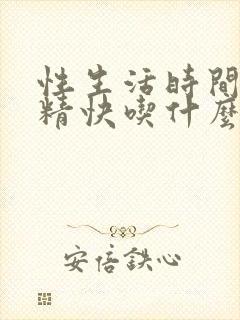 性生活時間
精快喫什麽
安倍鉄心